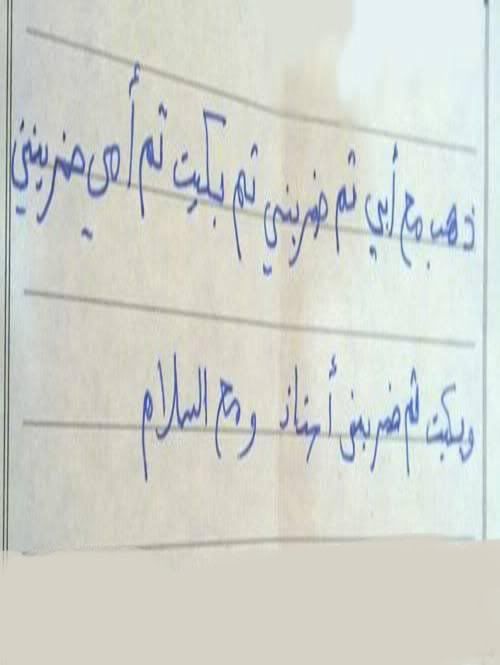 ذهب مع أبي ثم ضربني ثم بكيت ثم أمي ضربيني
وبكيت ثم ضربني أستاذ ومع السلام